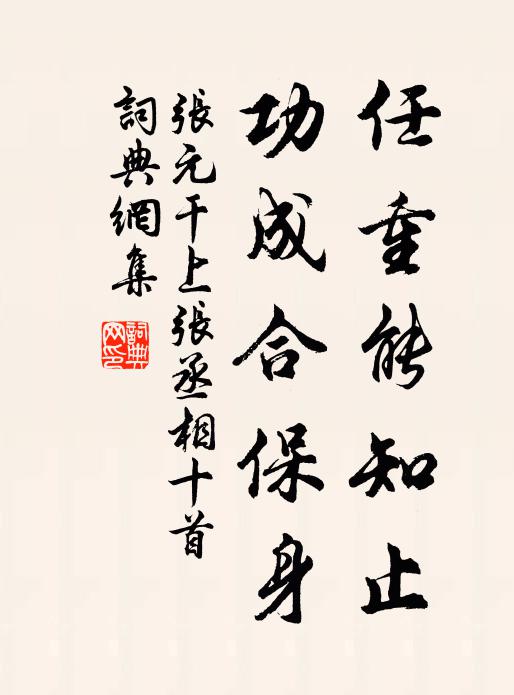 任重能知止
功成合保身
張元干上張丞相十首
詞典網集
詞典
网印